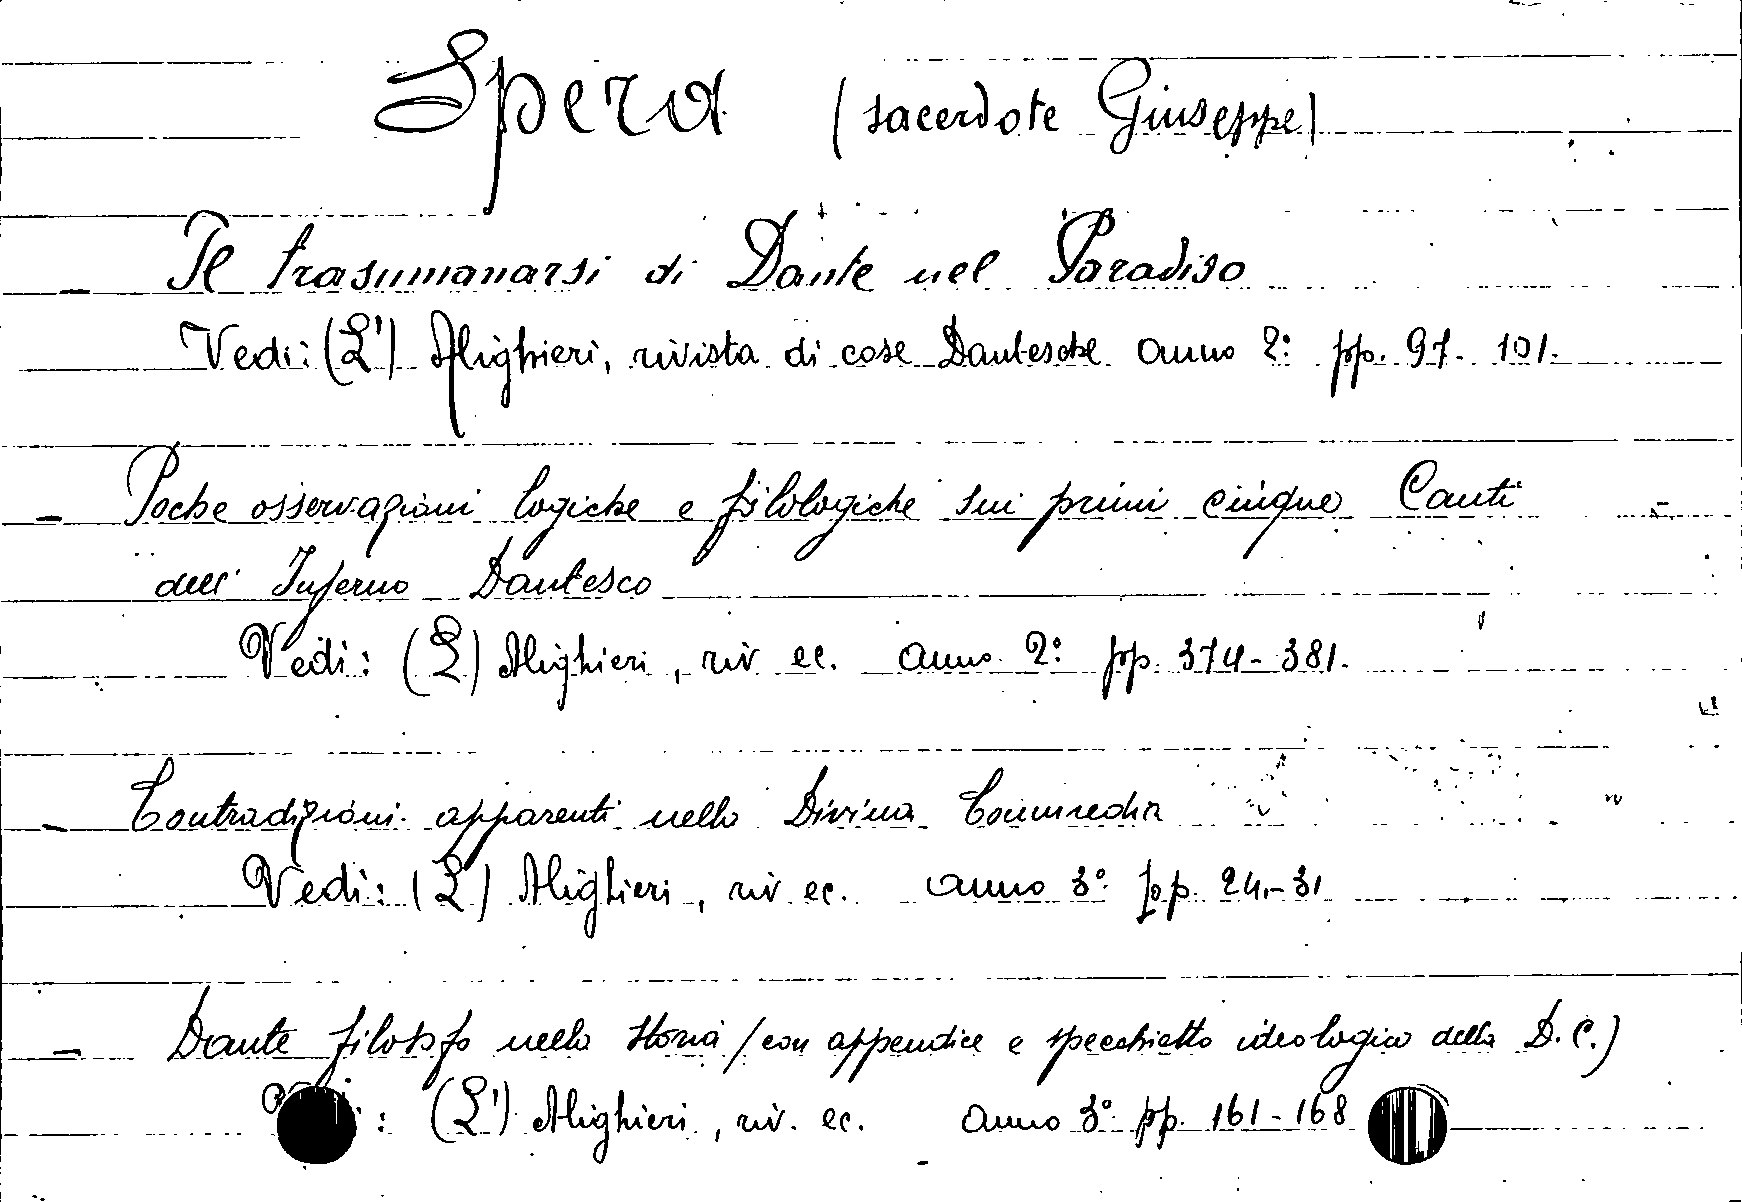 Spera (sacerdote Giuseppe)
- Il trasumanarsi di Dante nel Paradiso
Vedi: (L') Alighieri, rivista di cose Dantesche anno 2º pp. 97-101.
- Poche osservazioni logiche e filologiche sui primi cinque Canti
dell' Inferno Dantesco
Vedi: (L) Alighieri, riv ec. anno 2º pp. 374-381.
- Contradizioni apparenti nella Divina Commedia
Vedi: (L) Alighieri, riv ec. anno 3º pp. 24-31
- Dante filosofo nella storia (con appendice e specchietto ideologico della D.C.)
: (L') Alighieri, riv. ec. anno 3º pp. 161-168